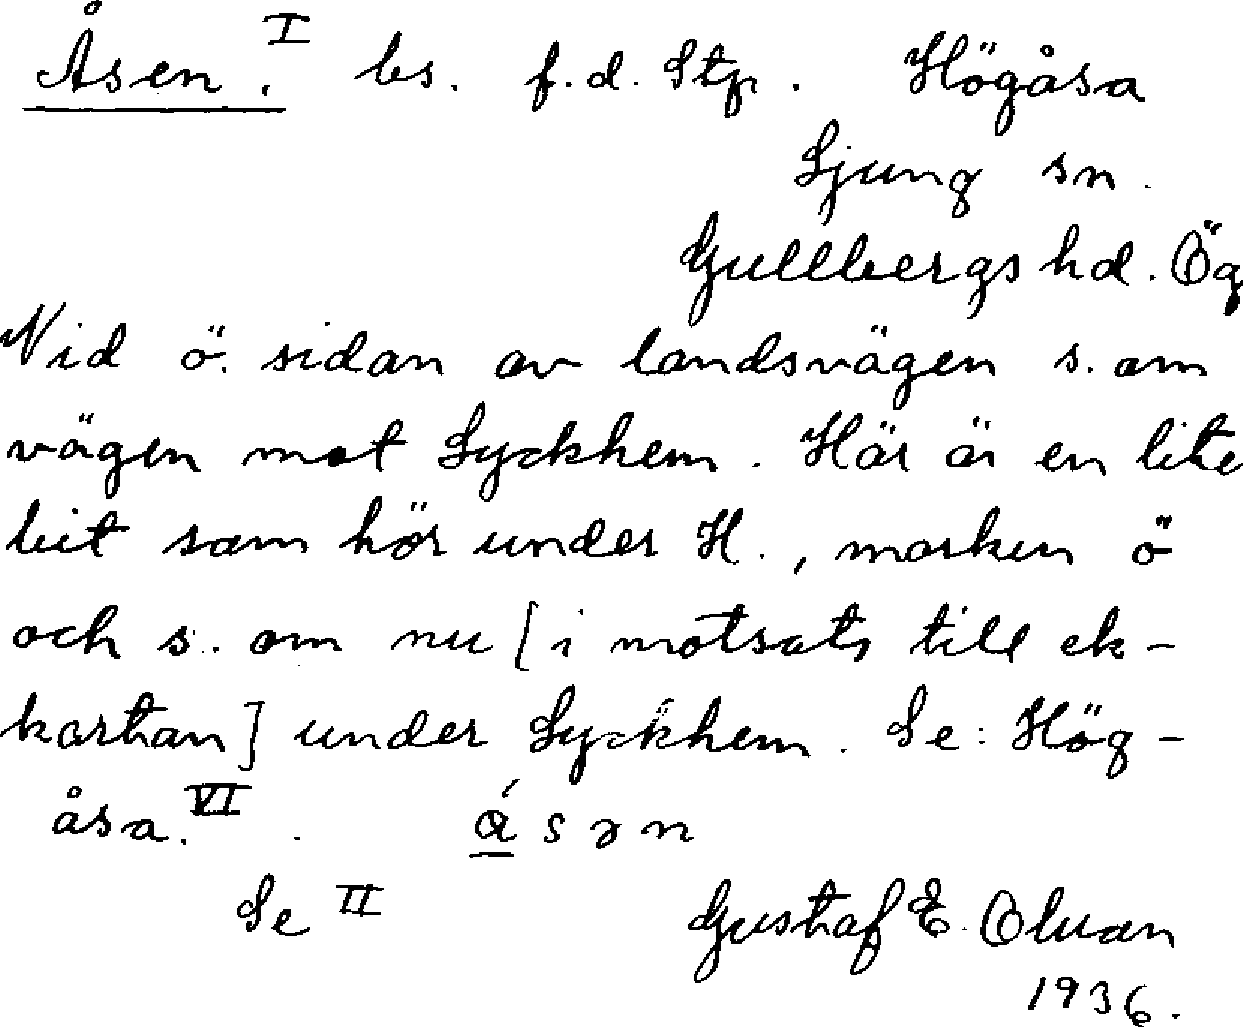 Åsen.I bs. f.d. Stp. Högåsa
Ljung sn.
Gullbergs hd. Ög
Vid ö. sidan av landsvägen s. om
vägen mot Lyckhem. Här är en lite
bit som hör under H., marken ö
och s. om nu [i motsats till ek-
kartan] under Lyckhem. Se: Hög-
åsa.VI. ɑ́sən
Se II
Gustaf E. Oluan
1936.